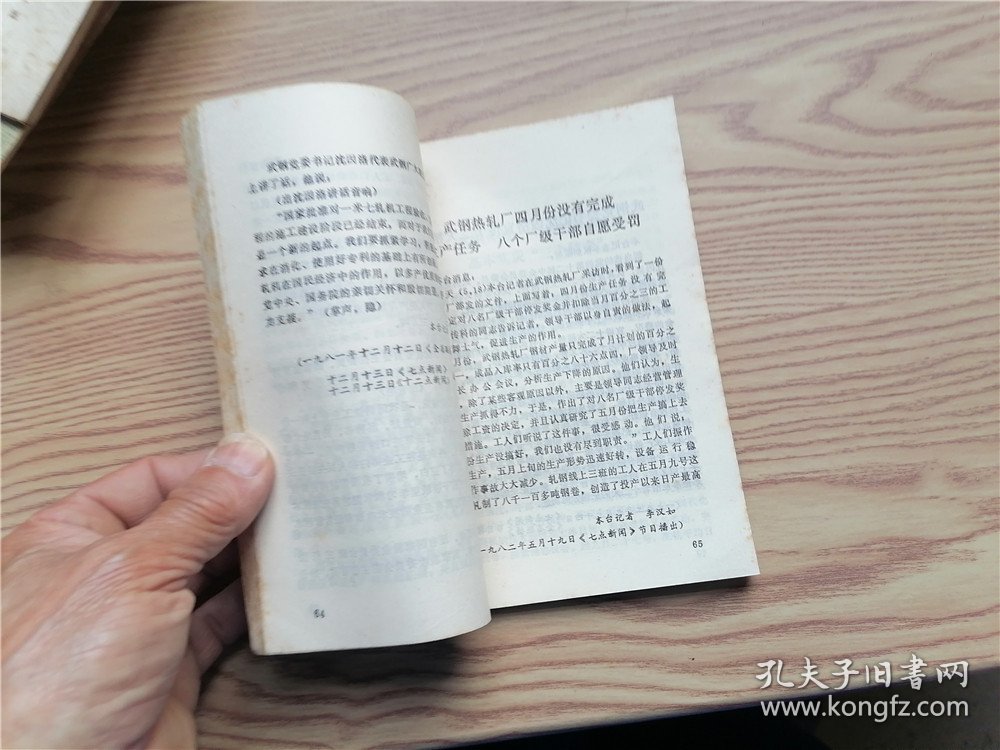 武钢党委书记沈因洛代表武钢广大
志讲了话,他说:
(沿沈因洛讲话音响)
“国家批准对一米七轧机工程验收,
程的施工建设阶段已经结束,而对于我
是一个新的起点。我们要抓紧学习,
求在消化、使用好专利的基础上有所
轧机在国民经济中的作用,以多产优质
党中央、国务院的亲切关怀和殷切
力支援。”(掌声,隐)
本台记
(一九八一年十二月十二日《全
十二月十三日《七点新闻》
十二月十三日《十二点新闻
64
武钢热轧厂四月份没有完成
产任务 八个厂级干部自愿受罚
台消息:
天(5,18)本台记者在武钢热轧厂采访时,看到了一份
厂部发的文件,上面写着,四月份生产任务没有完
定对八名厂级干部停发奖金并扣除当月百分之三的工
传科的同志告诉记者,领导干部以身自责的做法,起
舞士气,促进生产的作用。
月份,武钢热轧厂钢材产量只完成了月计划的百分之
一,成品入库率只有百分之八十六点四,厂领导及时
长办公会议,分析生产下降的原因。他们认为,生
,除了某些客观原因以外,主要是领导同志经营管理
生产抓得不力,于是,作出了对八名厂级干部停发奖
除工资的决定,并且认真研究了五月份把生产搞上去
措施。工人们听说了这件事,很受感动。他们说,
份生产没搞好,我们也没有尽到职责。”工人们振作
生产,五月上旬的生产形势迅速好转,设备运行稳
作事故大大减少。轧钢线上三班的工人在五月九号这
轧制了八千一百多吨钢卷,创造了投产以来日产最高
本台记者 李汉如
一九八二年五月十九日《七点新闻》节目播出)
65
孔夫子旧书网
www.kongfz.com